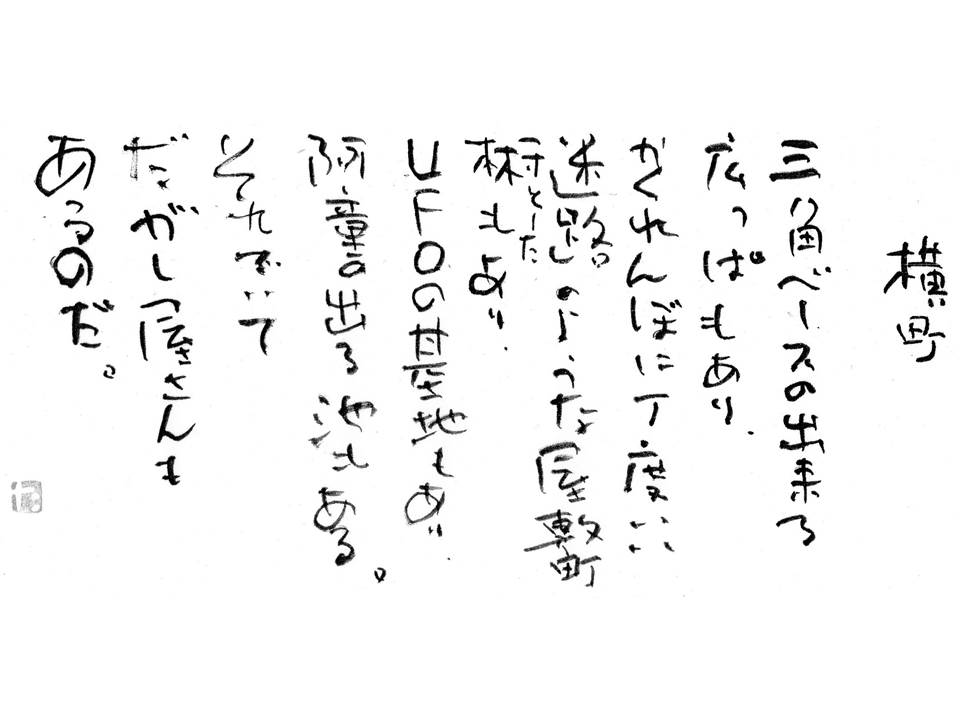 横町
三角ベースの出来る
広っぱもあり、
かくれんぼに丁度いい
迷路のような屋敷町
とした
林もあり、
UFOの基地もあり、
河童の出る池もある。
それでいて
だがし屋さんも
あるのだ。